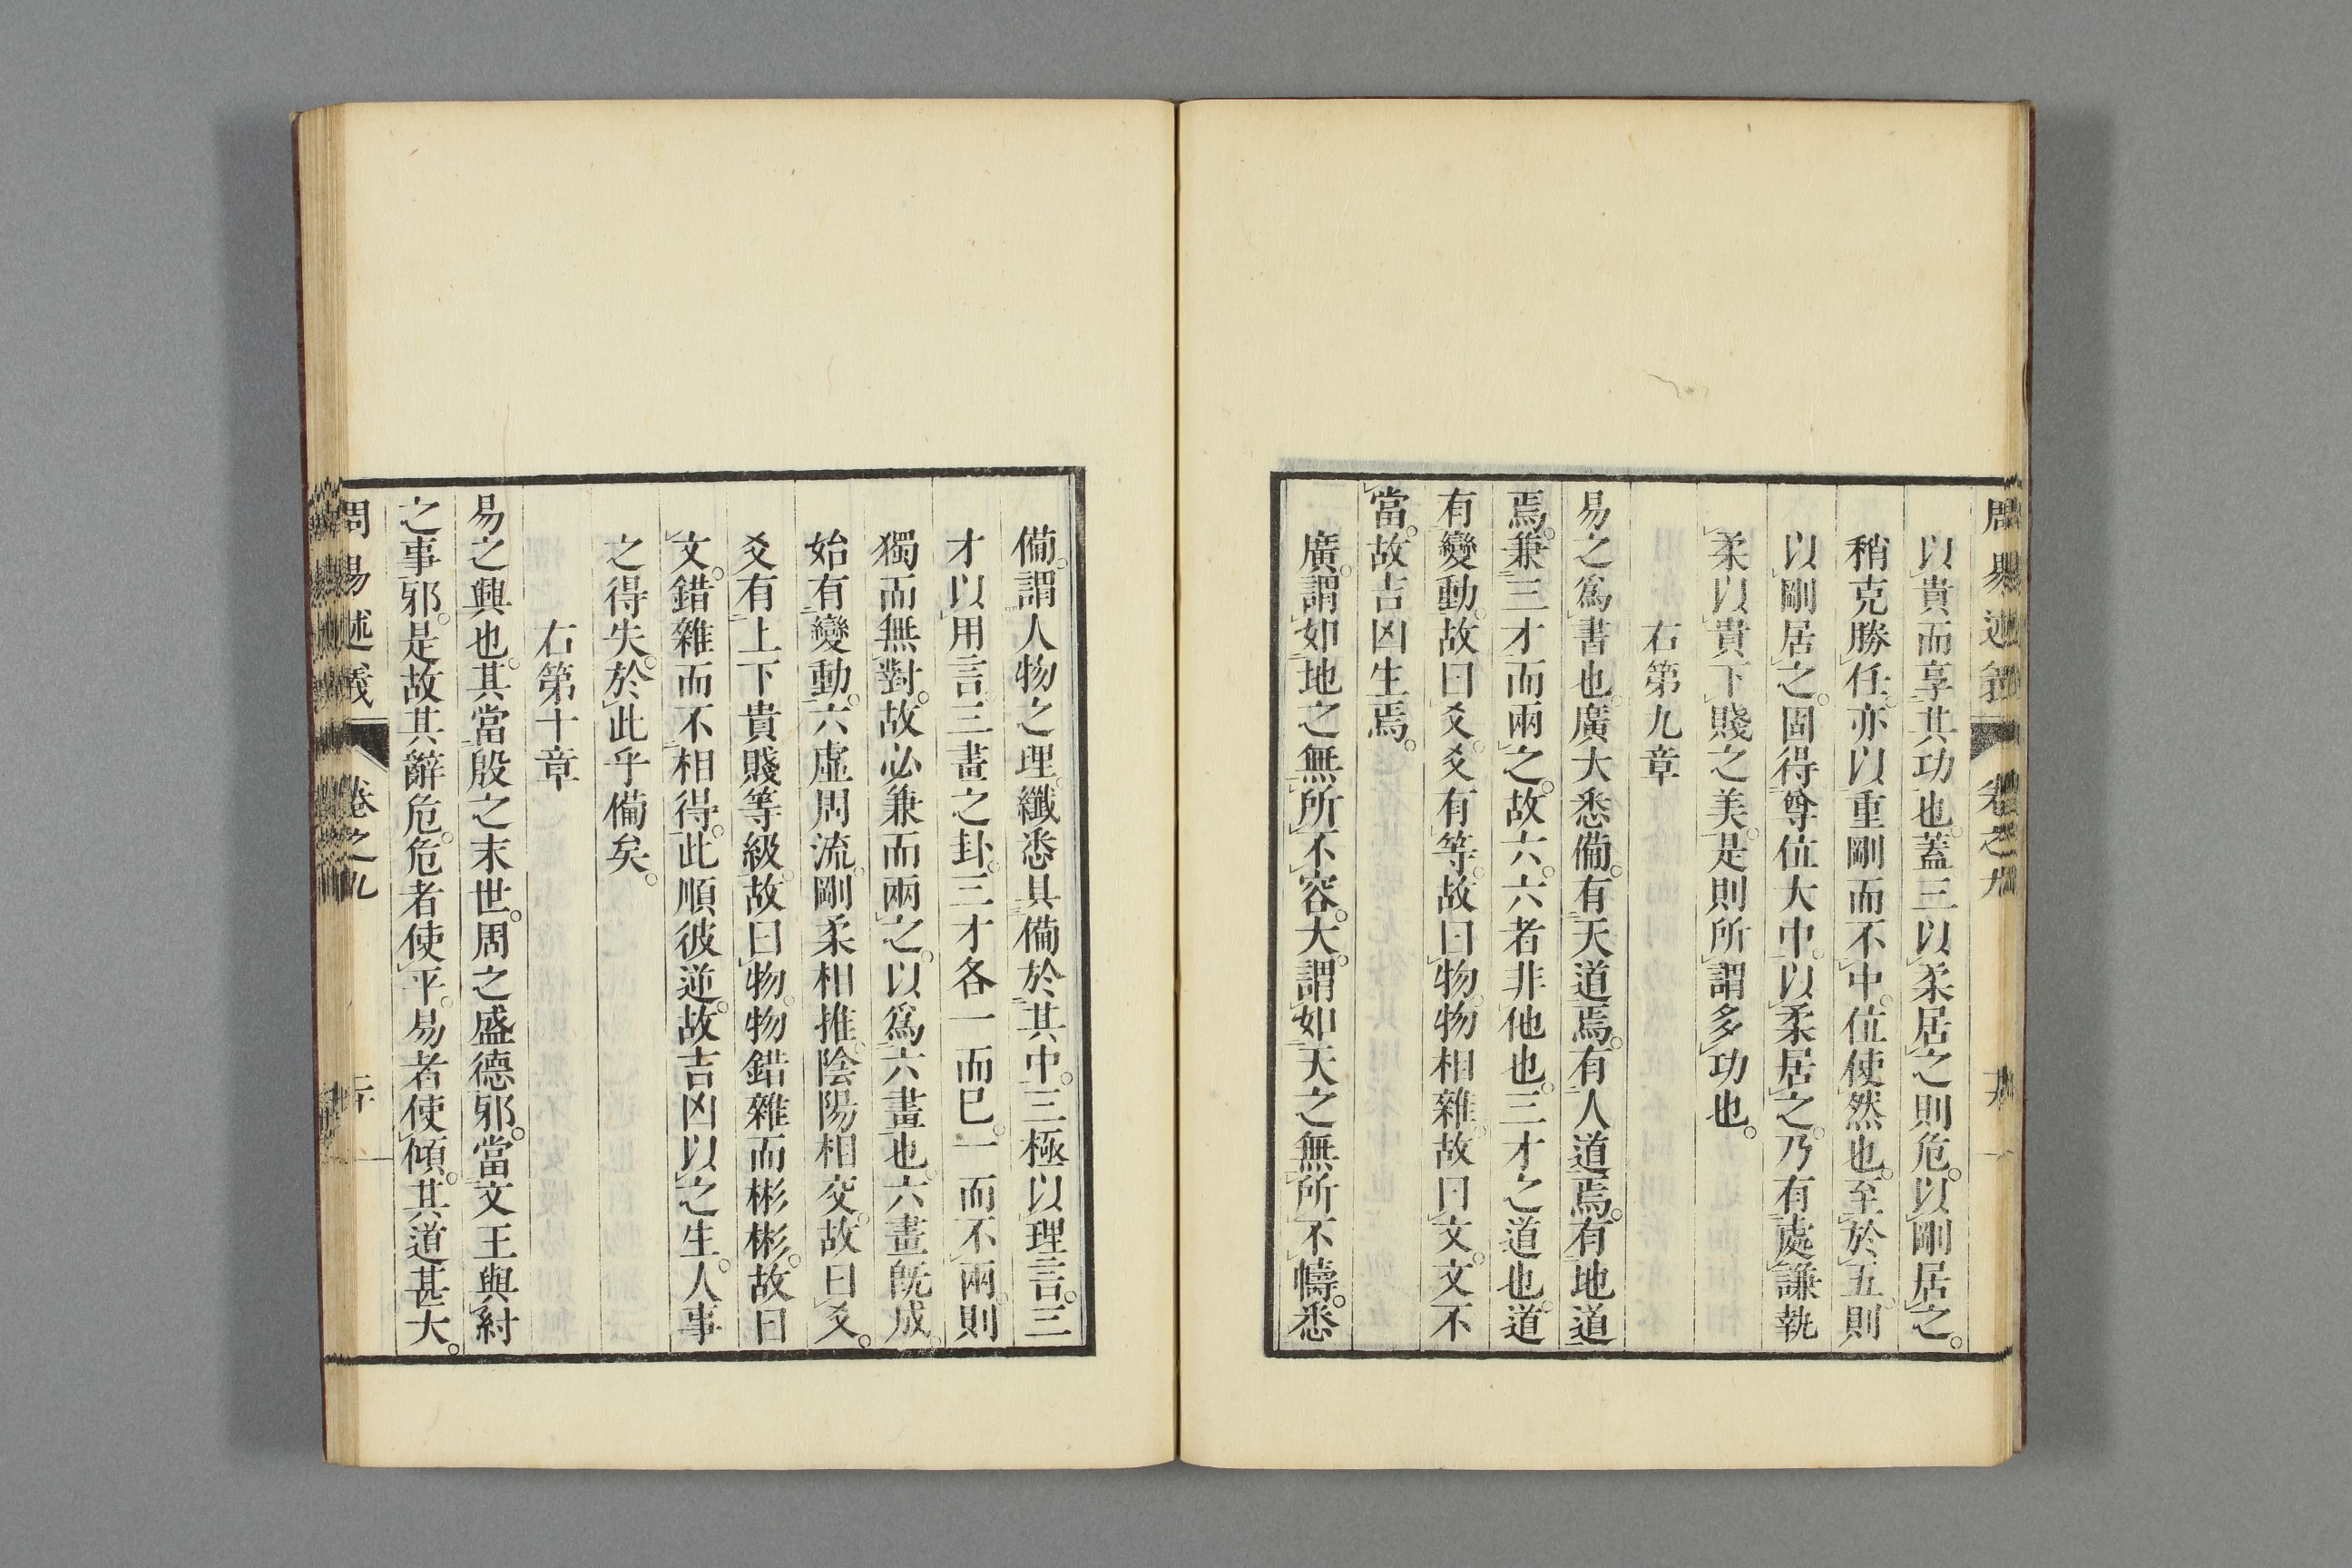 周易述義 卷之九 十九
以貴而享其功也。蓋三以柔居之則危。以剛居之。
稍克勝任。亦以重剛而不中。位使然也。至於五則
以剛居之。固得尊位大中。以柔居之。乃有處謙執
柔以貴下賤之美。是則所謂多功也。
右第九章
易之爲書也。廣大悉備。有天道焉。有人道焉。有地道
焉。兼三才而兩之。故六。六者非他也。三才之道也。道
有變動。故曰爻。爻有等。故曰物。物相雜。故曰文。文不
當。故吉凶生焉。
廣。謂如地之無所不容。大。謂如天之無所不幬。悉
備。謂人物之理。纖悉具備於其中。三極以理言。三
才以用言。三畫之卦。三才各一而已。一而不兩。則
獨而無對。故必兼而兩之。以爲六畫也。六畫既成。
始有變動。六虛周流。剛柔相推。陰陽相交。故曰爻。
爻有上下貴賤等級。故曰物。物錯雜而彬彬。故曰
文。錯雜而不相得。此順彼逆。故吉凶以之生。人事
之得失。於此乎備矣。
右第十章
易之興也。其當殷之末世。周之盛德邪。當文王與紂
之事邪。是故其辭危。危者使平。易者使傾。其道甚大。
周易述義 卷之九 二十